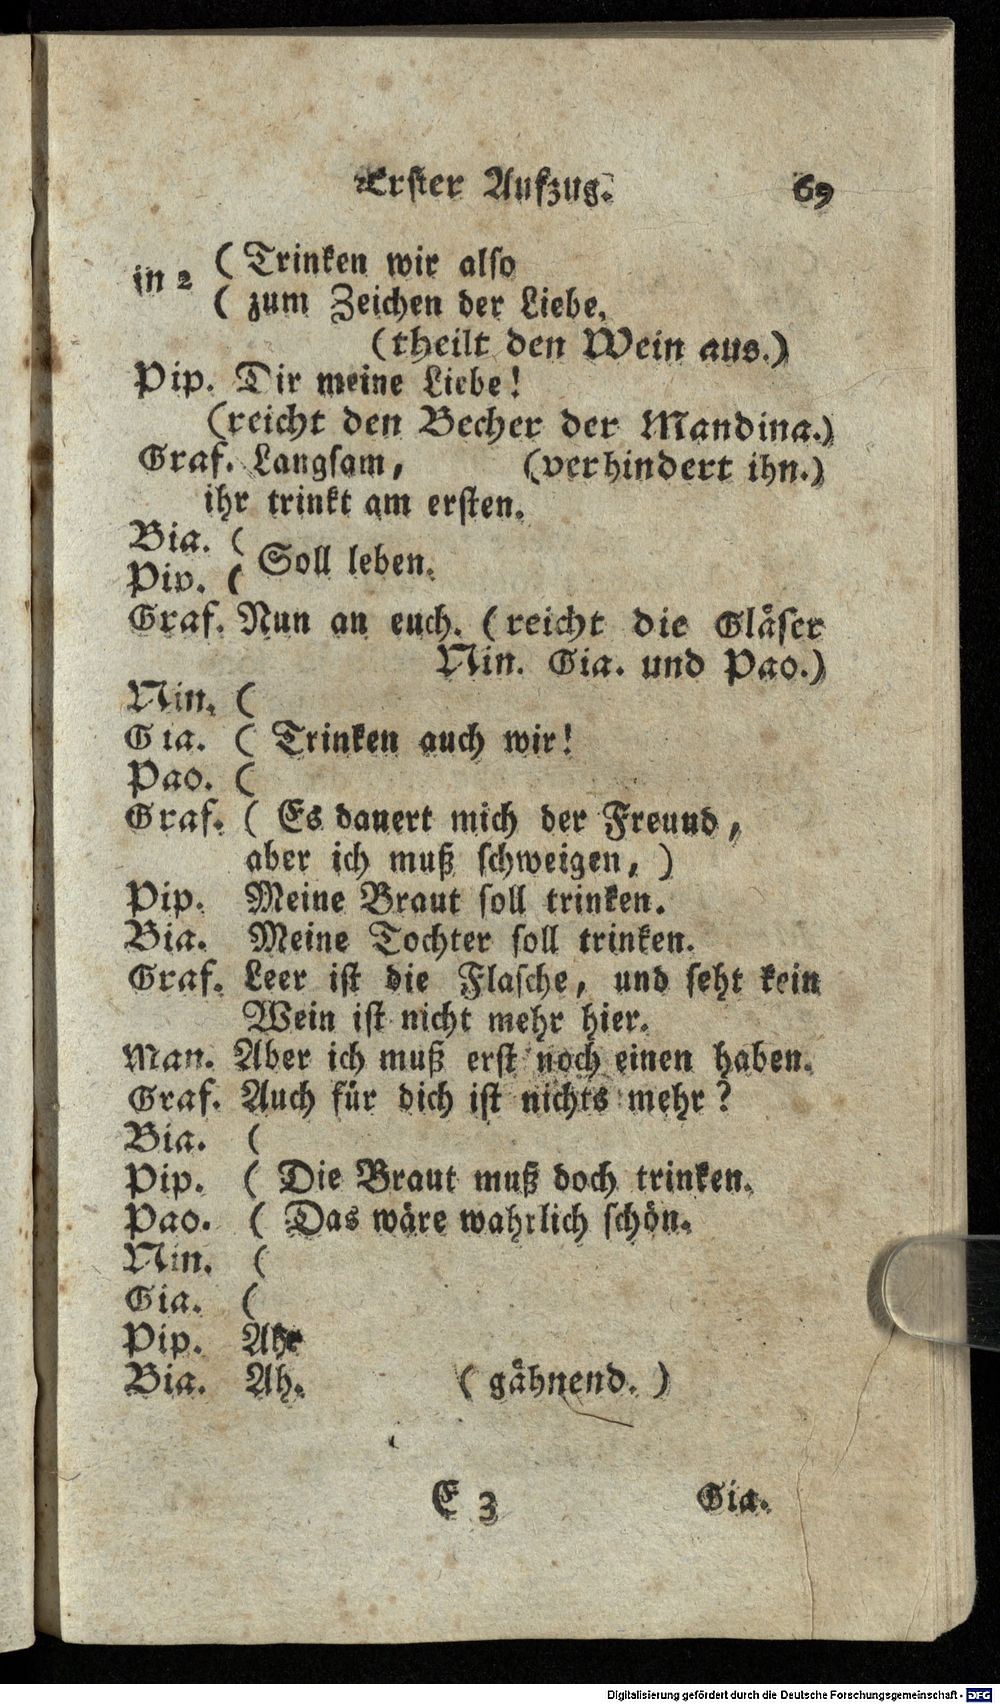 Erster Aufzug. 69
in 2 ( Trinken wir also
( zum Zeichen der Liebe,
(theilt den Wein aus.)
Pip. Dir meine Liebe!
(reicht den Becher der Mandina.)
Graf. Langsam, (verhindert ihn.)
ihr trinkt am ersten.
Bia. (
Pip. ( Soll leben.
Graf. Nun an euch. (reicht die Gläser
Nin. Gia. und Pao.)
Nin. (
Gia. ( Trinken auch wir!
Pao. (
Graf. ( Es dauert mich der Freund,
aber ich muß schweigen, )
Pip. Meine Braut soll trinken.
Bia. Meine Tochter soll trinken.
Graf. Leer ist die Flasche, und seht kein
Wein ist nicht mehr hier.
Man. Aber ich muß erst noch einen haben.
Graf. Auch für dich ist nichts mehr?
Bia. (
Pip. ( Die Braut muß doch trinken.
Pao. ( Das wäre wahrlich schön.
Nin. (
Gia. (
Pip. Ah.
Bia. Ah. ( gähnend. )
E 3 Gia.
Digitalisierung gefördert durch die Deutsche Forschungsgemeinschaft - DFG